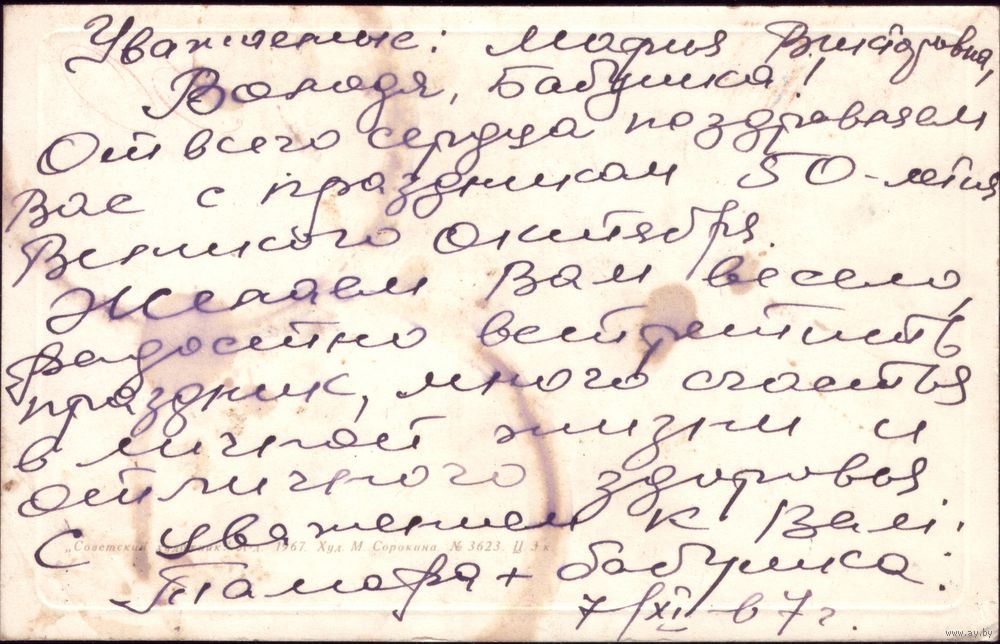 Уважаемые: Мария Викторовна,
Володя, Бабушка!
От всего сердца поздравляем
Вас с праздником 50-летия
Великого Октября.
Желаем Вам весело,
радостно встретить
праздник, много счастья
в личной жизни и
отличного здоровья.
С уважением к Вам.
„Советский художник" 1967. Худ. М. Сорокина № 3623. Ц 3 к
Тамара + бабушка.
7/XI - 67 г.
www.ay.by